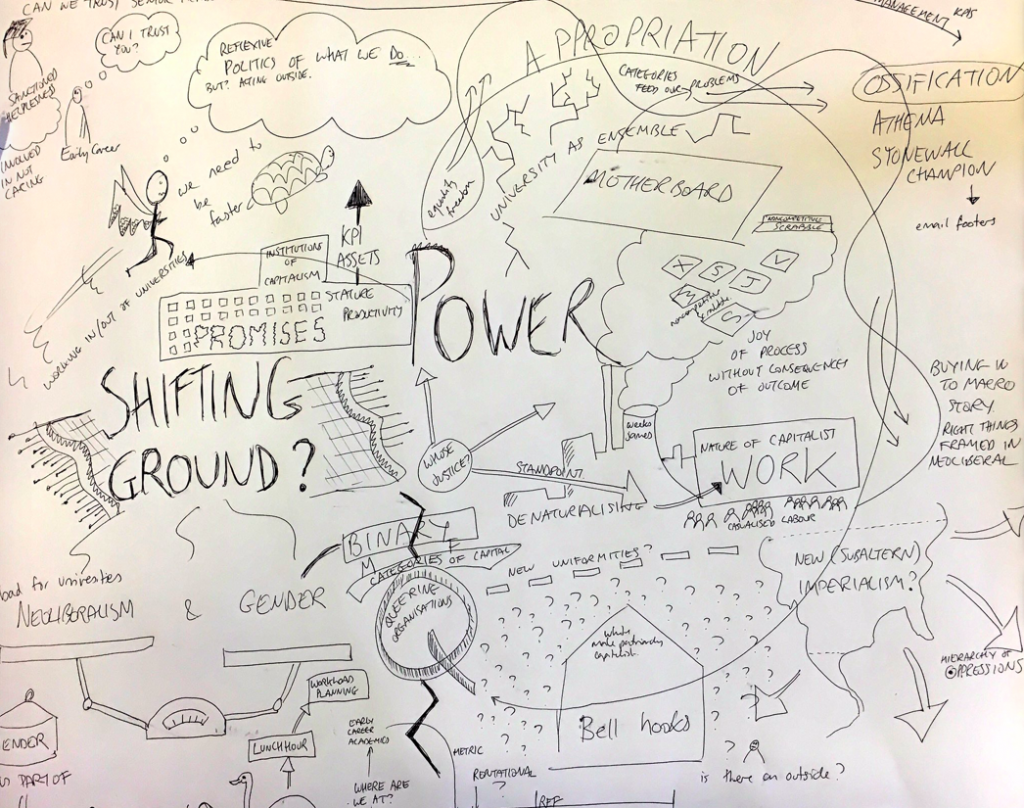 CAN WE TRUST SENIOR
MANAGEMENT
KPIS
CAN I TRUST
YOU?
SANCTIONED
HELPLESSNESS
INVOLVED
IN NOT
CARING
Early Career
REFLEXIVE
POLITICS OF WHAT WE DO...
BUT? ACTING OUTSIDE.
we need to
be
faster
APPROPRIATION
CATEGORIES
FEED OUR PROBLEMS
equality
freedom
UNIVERSITY AS ENSEMBLE
MOTHERBOARD
OSSIFICATION
ATHENA
STONEWALL
CHAMPION
email footers
NONCOMPETITIVE
SCRABBLE
X S V
M J
S
noncompetitive
scrabble
JOY
OF PROCESS
WITHOUT CONSEQUENCES
OF OUTCOME
KPI
ASSETS
INSTITUTIONS
OF
CAPITALISM
STATURE
PRODUCTIVITY
PROMISES
WORKING IN/OUT OF UNIVERSITIES
POWER
SHIFTING
GROUND?
WHOSE
JUSTICE?
STANDPOINT
DENATURALISING
weeks
James
NATURE OF CAPITALIST
WORK
CASUALISED LABOUR
BUYING IN
TO MACRO
STORY.
RIGHT THINGS
FRAMED IN
NEOLIBERAL
BINARY
M F
CATEGORIES OF CAPITAL
QUEERING
ORGANISATIONS
NEW UNIFORMITIES?
NEW (SUBALTERN)
IMPERIALISM?
HIERARCHY OF
OPPRESSIONS
white
male patriarchy
capitalist
Bell hooks
is there an outside?
load for universities
NEOLIBERALISM & GENDER
WORKLOAD
PLANNING
LUNCH HOUR
EARLY
CAREER
ACADEMICS
WHERE ARE
WE AT?
METRIC
REPUTATIONAL
?
REF
ENDER
PART OF